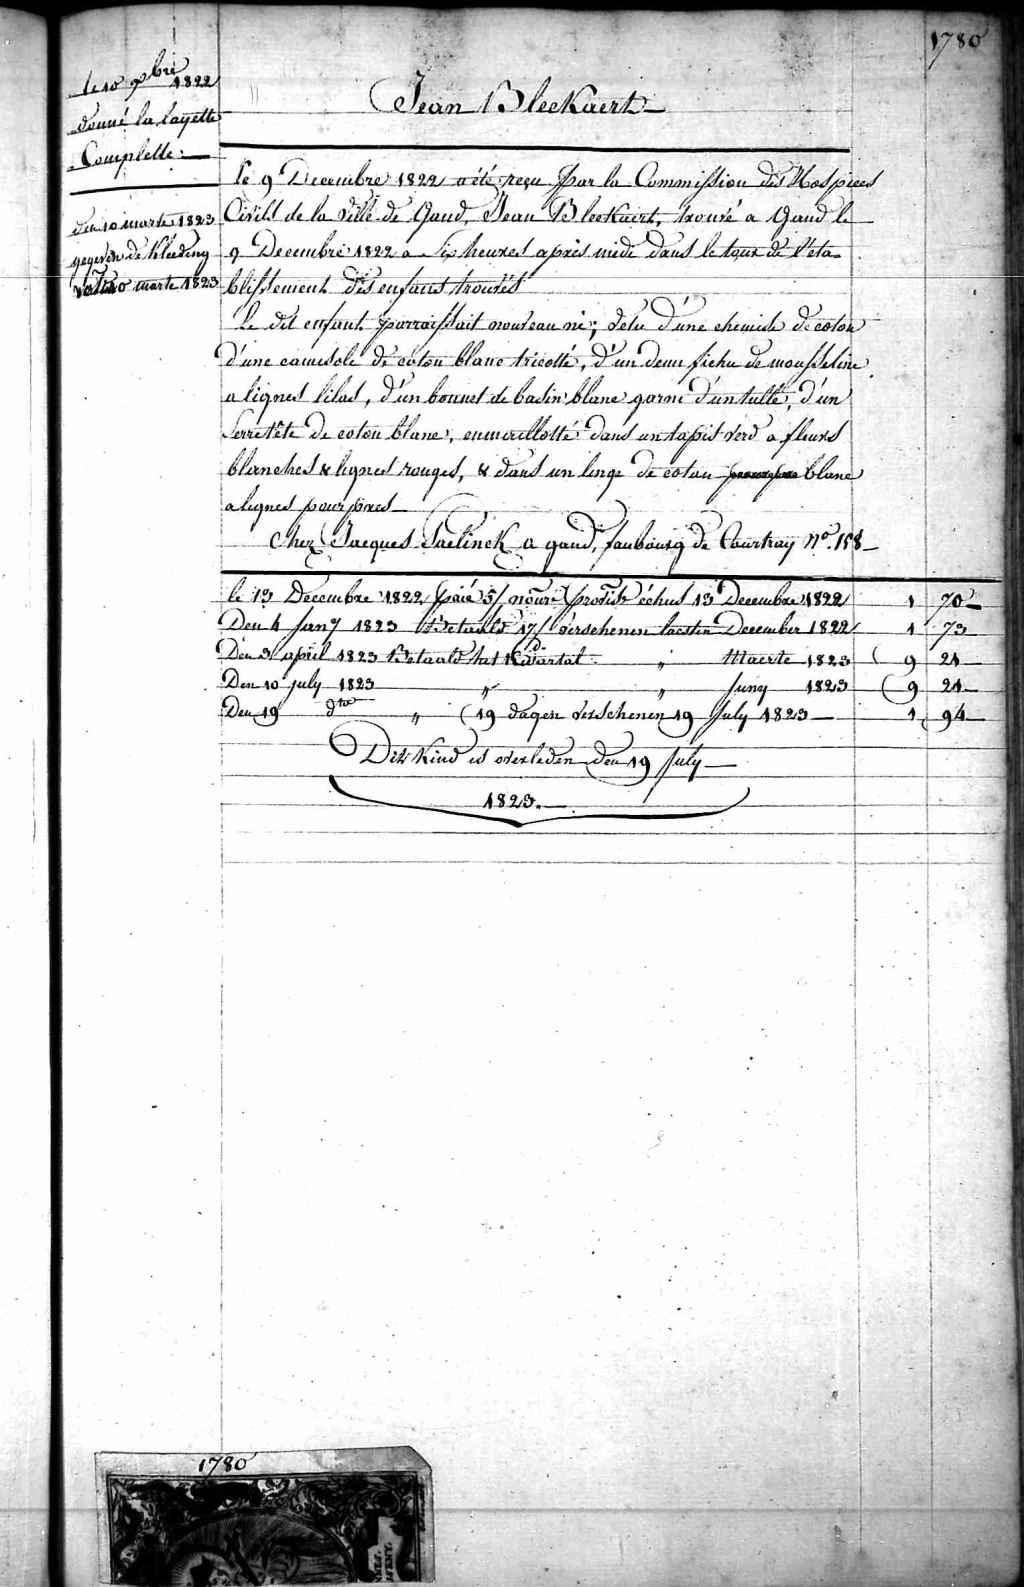 1780
le 10 xbre 1822
donné la layette
Complette.
den 10 marte 1823
gegeven de Kleeding
10 marte 1823
Jean Bleekaert
le 9 Decembre 1822 a été reçu par la Commission des Hospices
Civils de la Ville de Gand, Jean Bleekaert, trouvé a Gand le
9 Decembre 1822 a six heures après midi dans le tour de l'éta-
blissement des enfans trouvés
Le dit enfant parraissait nouveau né; vetu d'une chemise de coton
d'une camisole de coton blanc tricotté, d'un demi fichu de mousseline
a lignes lilas, d'un bonnet de basin blanc garni d'un tulle, d'un
serretête de coton blanc, enmaillotté dans un tapis verd a fleurs
blanches & lignes rouges, & dans un linge de coton blanc
a lignes pourpres
Chez Jacques Saelinck a gand, faubourg de Courtray No. 158
le 13 Decembre 1822 paié 5/ nourre provis échus 13 Decembre 1822 1 70
Den 4 Jany 1823 Betaald 17/ verschenen laesten December 1822 1 73
Den 3 april 1823 Betaald het 1e Quartal " Maerte 1823 9 21
Den 10 july 1823 " " Juny 1823 9 21
Den 19 dto " 19 dagen verschenen 19 July 1823 1 94
Dit Kind is overleden den 19 July
1823.
1780